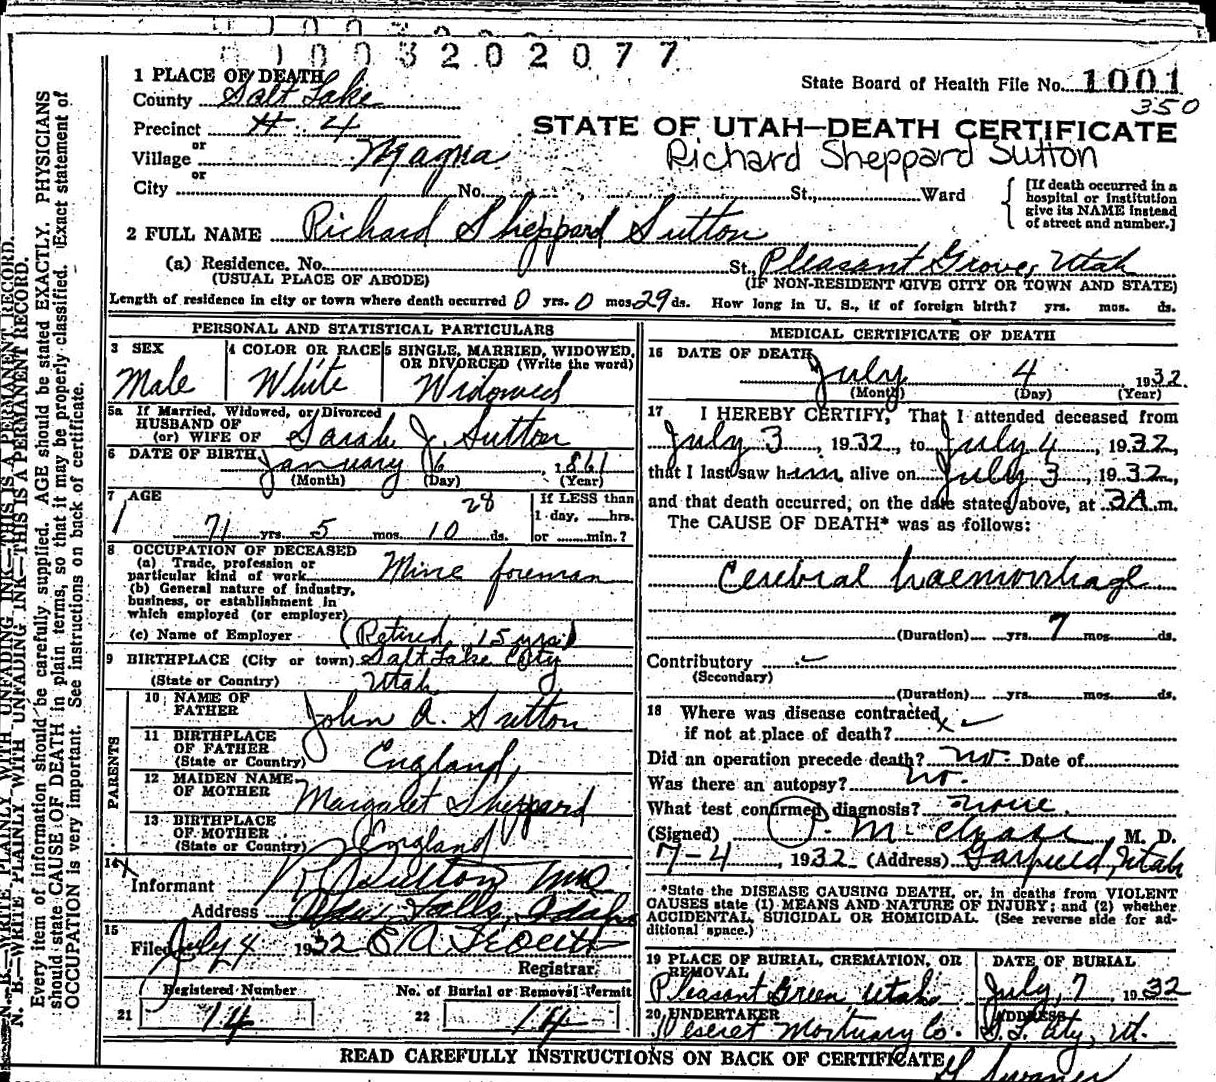 0 1 0 0 3 2 0 2 0 7 7
1 PLACE OF DEATH
State Board of Health File No. 1001
County Salt Lake
350
Precinct # 4
STATE OF UTAH—DEATH CERTIFICATE
or
Village Magna
Richard Sheppard Sutton
or
City No. St., Ward
[If death occurred in a hospital or institution give its NAME instead of street and number.]
2 FULL NAME Richard Sheppard Sutton
(a) Residence. No. St., Pleasant Grove, Utah
(USUAL PLACE OF ABODE) (IF NON-RESIDENT GIVE CITY OR TOWN AND STATE)
Length of residence in city or town where death occurred 0 yrs. 0 mos. 29 ds. How long in U. S., if of foreign birth? yrs. mos. ds.
PERSONAL AND STATISTICAL PARTICULARS
3 SEX
Male
4 COLOR OR RACE
White
5 SINGLE, MARRIED, WIDOWED, OR DIVORCED (Write the word)
Widowed
5a If Married, Widowed, or Divorced
HUSBAND OF
(or) WIFE OF Sarah J. Sutton
6 DATE OF BIRTH January 6, 1861
(Month) (Day) (Year)
7 AGE
28
71 yrs. 5 mos. 10 ds.
If LESS than
1 day, hrs.
or min.?
8 OCCUPATION OF DECEASED
(a) Trade, profession or
particular kind of work Mine foreman
(b) General nature of industry,
business, or establishment in
which employed (or employer)
(c) Name of Employer (Retired 15 yrs.)
9 BIRTHPLACE (City or town) Salt Lake City
(State or Country) Utah
PARENTS
10 NAME OF
FATHER John A. Sutton
11 BIRTHPLACE
OF FATHER
(State or Country) England
12 MAIDEN NAME
OF MOTHER Margaret Sheppard
13 BIRTHPLACE
OF MOTHER
(State or Country) England
14
Informant Sutton
Address Falls, Idaho
15
Filed July 4 1932 E A
Registrar
Registered Number
21 14
No. of Burial or Removal Permit
22 14
MEDICAL CERTIFICATE OF DEATH
16 DATE OF DEATH
July 4, 1932.
(Month) (Day) (Year)
17 I HEREBY CERTIFY, That I attended deceased from
July 3, 1932, to July 4, 1932,
that I last saw him alive on July 3, 1932,
and that death occurred, on the date stated above, at 3A m.
The CAUSE OF DEATH* was as follows:
Cerebral haemorrhage
(Duration) yrs. 7 mos. ds.
Contributory
(Secondary)
(Duration) yrs. mos. ds.
18 Where was disease contracted
if not at place of death?
Did an operation precede death? no. Date of
Was there an autopsy? no.
What test confirmed diagnosis? none.
(Signed) M. D.
7-4, 1932 (Address) Garfield, Utah
*State the DISEASE CAUSING DEATH, or, in deaths from VIOLENT
CAUSES state (1) MEANS AND NATURE OF INJURY; and (2) whether
ACCIDENTAL, SUICIDAL OR HOMICIDAL. (See reverse side for ad-
ditional space.)
19 PLACE OF BURIAL, CREMATION, OR
REMOVAL
Pleasant Green Utah
DATE OF BURIAL
July, 7 1932
20 UNDERTAKER
Deseret Mortuary Co.
ADDRESS
S. L. City, Ut.
READ CAREFULLY INSTRUCTIONS ON BACK OF CERTIFICATE
N. B.—WRITE PLAINLY WITH UNFADING INK—THIS IS A PERMANENT RECORD.
Every item of information should be carefully supplied. AGE should be stated EXACTLY. PHYSICIANS
should state CAUSE OF DEATH in plain terms, so that it may be properly classified. Exact statement of
OCCUPATION is very important. See instructions on back of certificate.